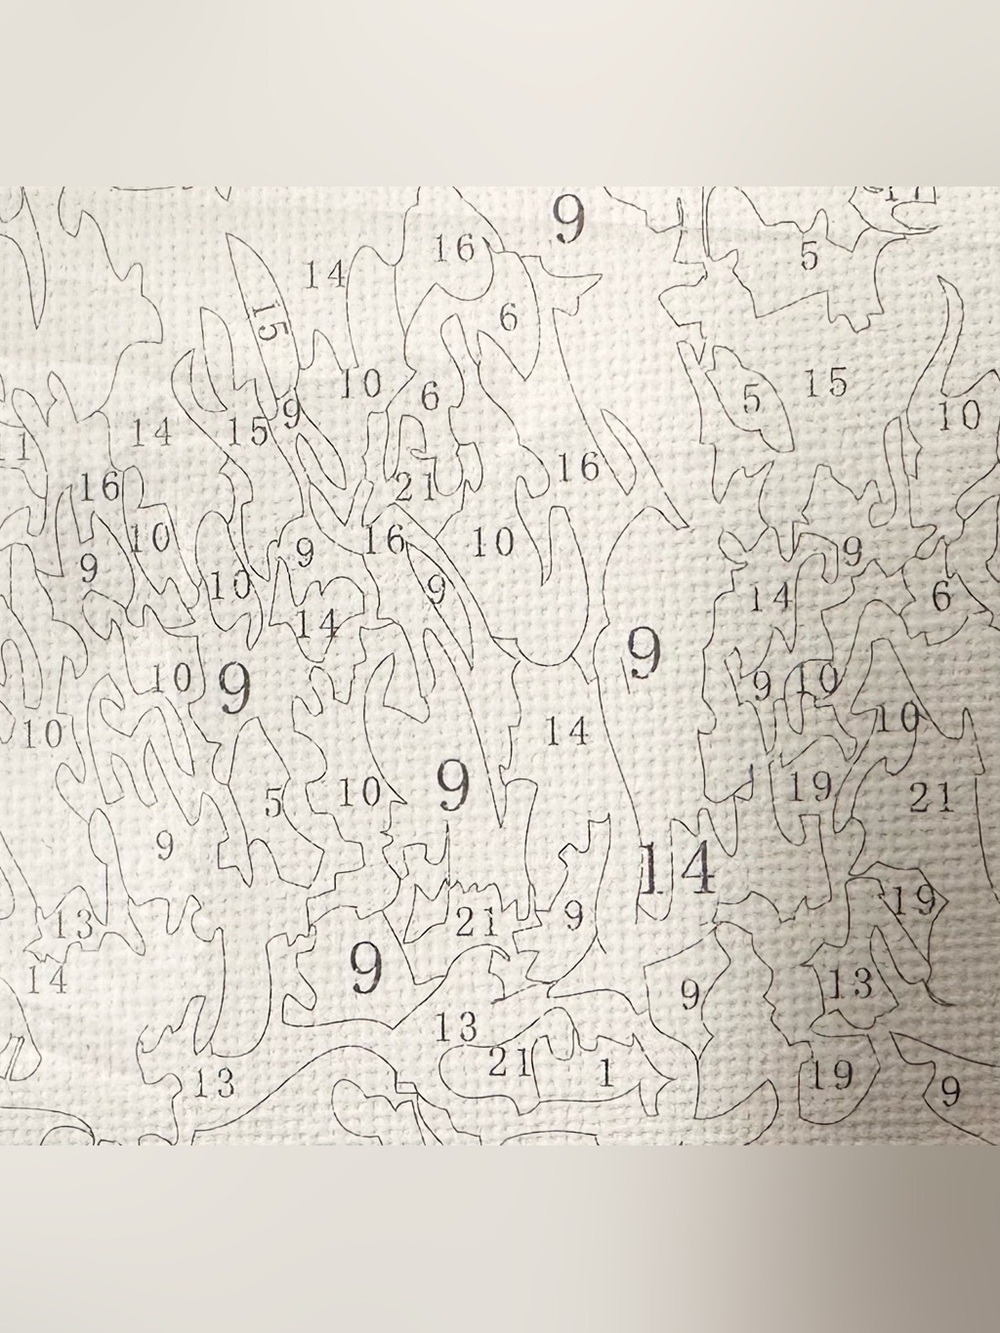 9
16
5
14
15
6
10
6
5
15
9
10
15
14
16
21
16
10
16
10
9
9
9
10
9
14
6
14
9
10
9
9
10
10
14
10
9
10
19
21
5
9
14
19
9
21
13
9
14
13
9
13
21
1
19
13
9